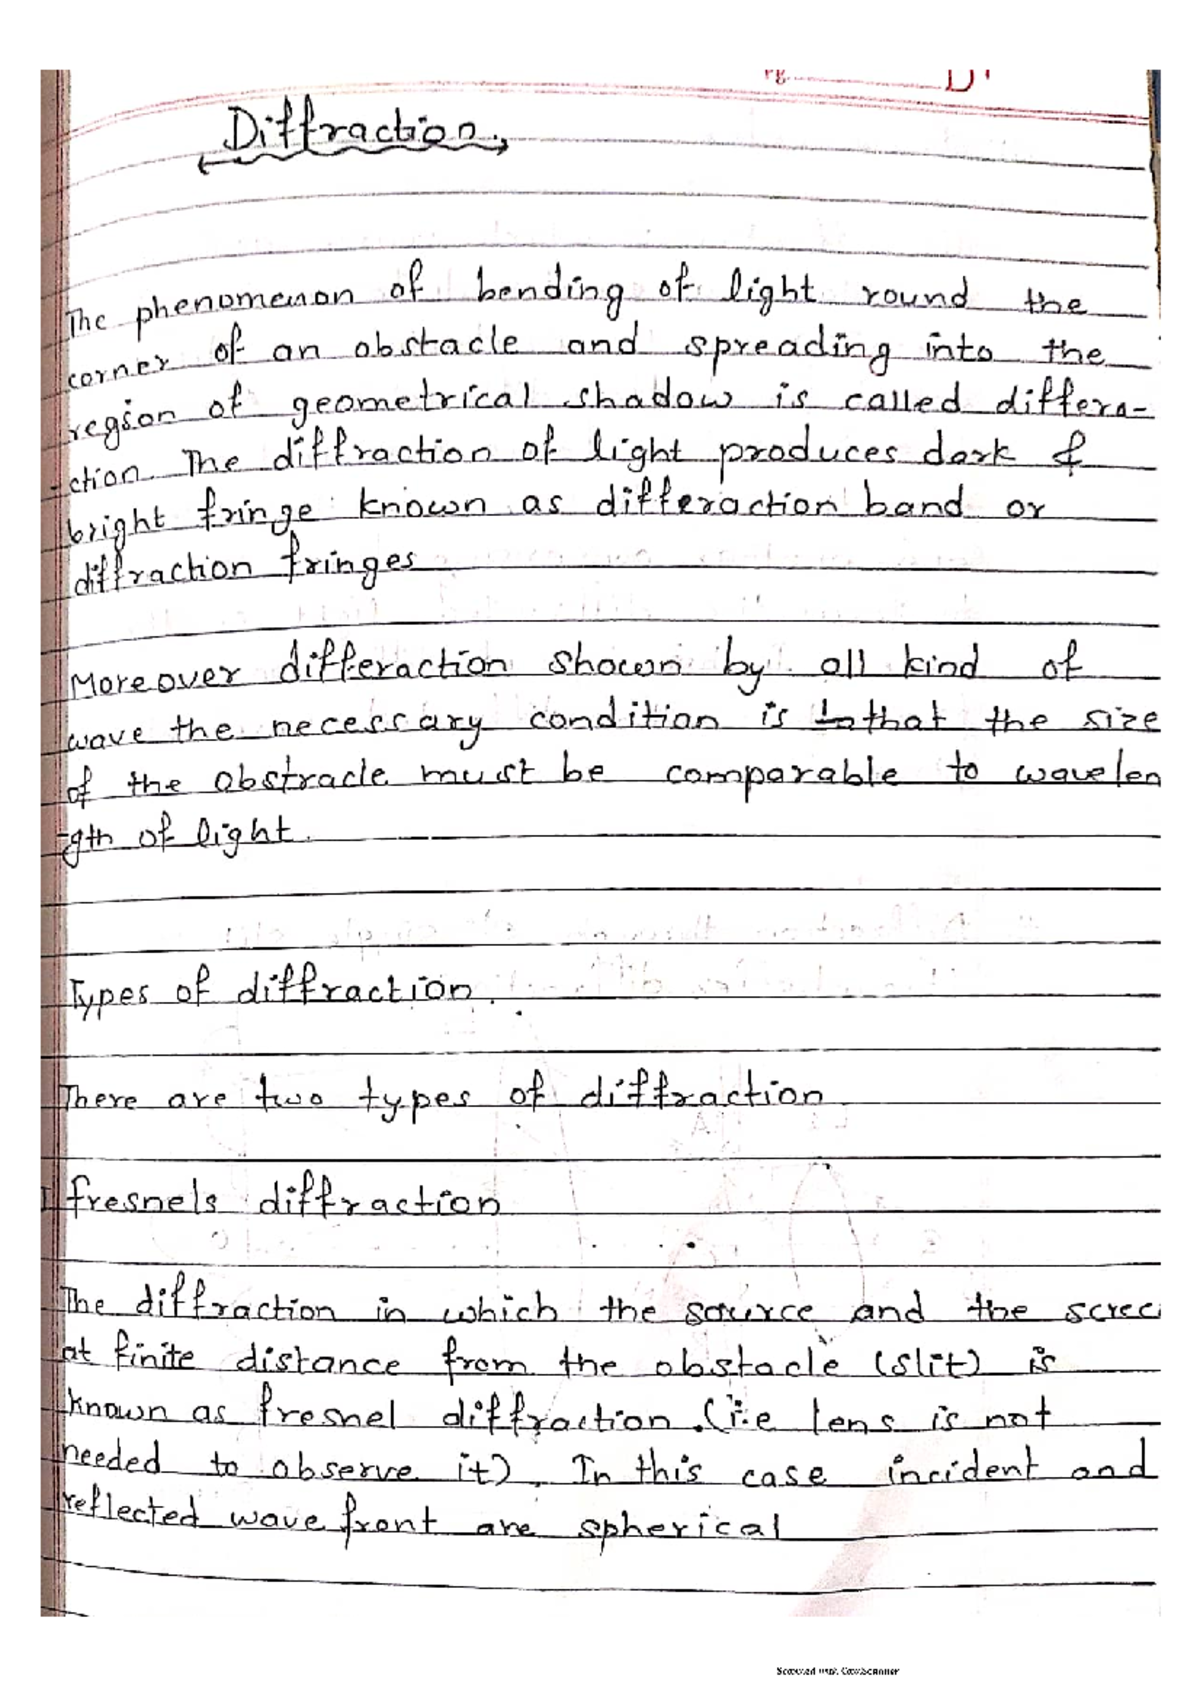 Pg.
Diffraction.
The phenomenon of bending of light round the
corner of an obstacle and spreading into the
region of geometrical shadow is called differa-
-ction. The diffraction of light produces dark &
bright fringe known as differaction band or
diffraction fringes
Moreover differaction shown by all kind of
wave the necessary condition is to that the size
of the obstracle must be comparable to wavelen
-gth of light.
Types of diffraction.
There are two types of diffraction
I fresnels diffraction
The diffraction in which the source and the scree
at finite distance from the obstacle (slit) is
known as fresnel diffraction. (i.e lens is not
needed to observe it). In this case incident and
reflected wave front are spherical
Scanned with CamScanner